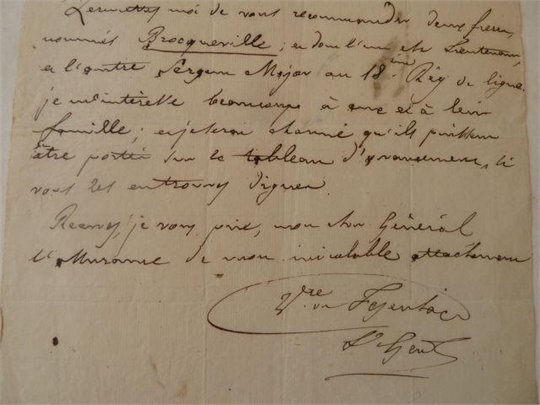 Permettez moi de vous recommander deux freres
nommés Brocqueville; et dont l'un est Lieutenant
et l'autre Sergent Major au 18eme Rég de ligne
je m'interesse beaucoup à eux et à leur
famille; et je serai charmé qu'ils puissent
être portés sur le tableau d'avancement, si
vous les en trouvez dignes.
Recevez, je vous prie, mon cher Général
l'assurance de mon inviolable attachement
Vte de Fezensac
Lt Genl